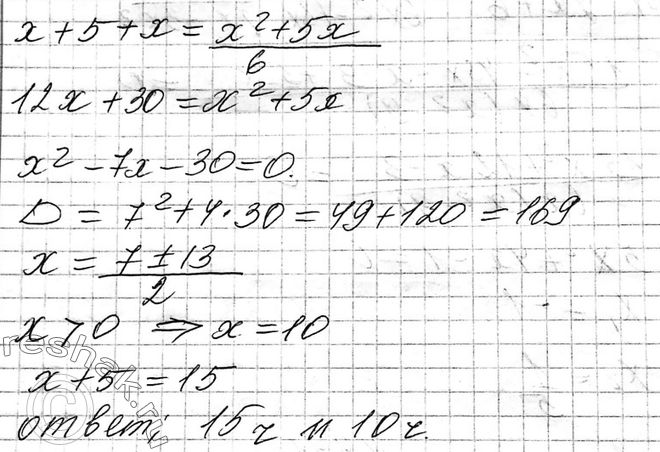 x + 5 + x = (x² + 5x)/6
12x + 30 = x² + 5x
x² - 7x - 30 = 0.
D = 7² + 4·30 = 49 + 120 = 169
x = (7 ± 13)/2
x > 0 ⇒ x = 10
x + 5 = 15
ответ: 15ч и 10ч.
reshak.ru